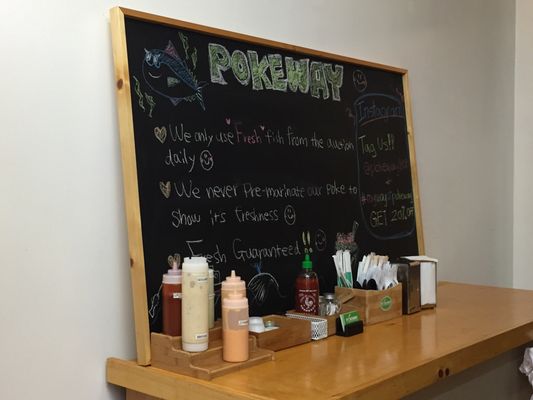 POKEWAY
We only use Fresh fish from the auction
daily
We never Pre-marinate our poke to
show its freshness
Fresh Guaranteed !!
Instagram
Tag Us!!
GET 20% off